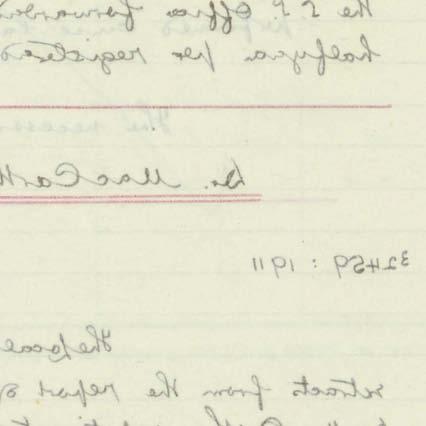 the Office forwarde
halfyear per registered
The necess
Dr. MacCart
32459 : 1911
The Local
xtracts from the report o